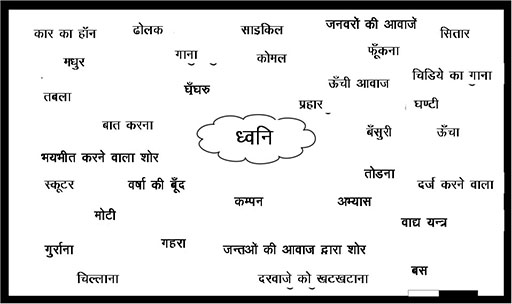 कार का हॉन
ढोलक
साइकिल
जनवरों की आवाजें
सितार
मधुर
गाना
कोमल
फूँकना
तबला
घुँघरु
ऊँची आवाज
चिडिये का गुाना
प्रहार
घण्टी
बात करना
ध्वनि
बँसुरी
ऊँचा
भयभीत करने वाला शोर
तोडना
स्कूटर
वर्षा की बूँद
दर्ज करने वाला
कम्पन
अभ्यास
मोटी
वाद्य यन्त्र
गुर्राना
गहरा
जन्तओं की आवाज द्वारा शोर
चिल्लाना
दरवाजे को खटखटाना
बस